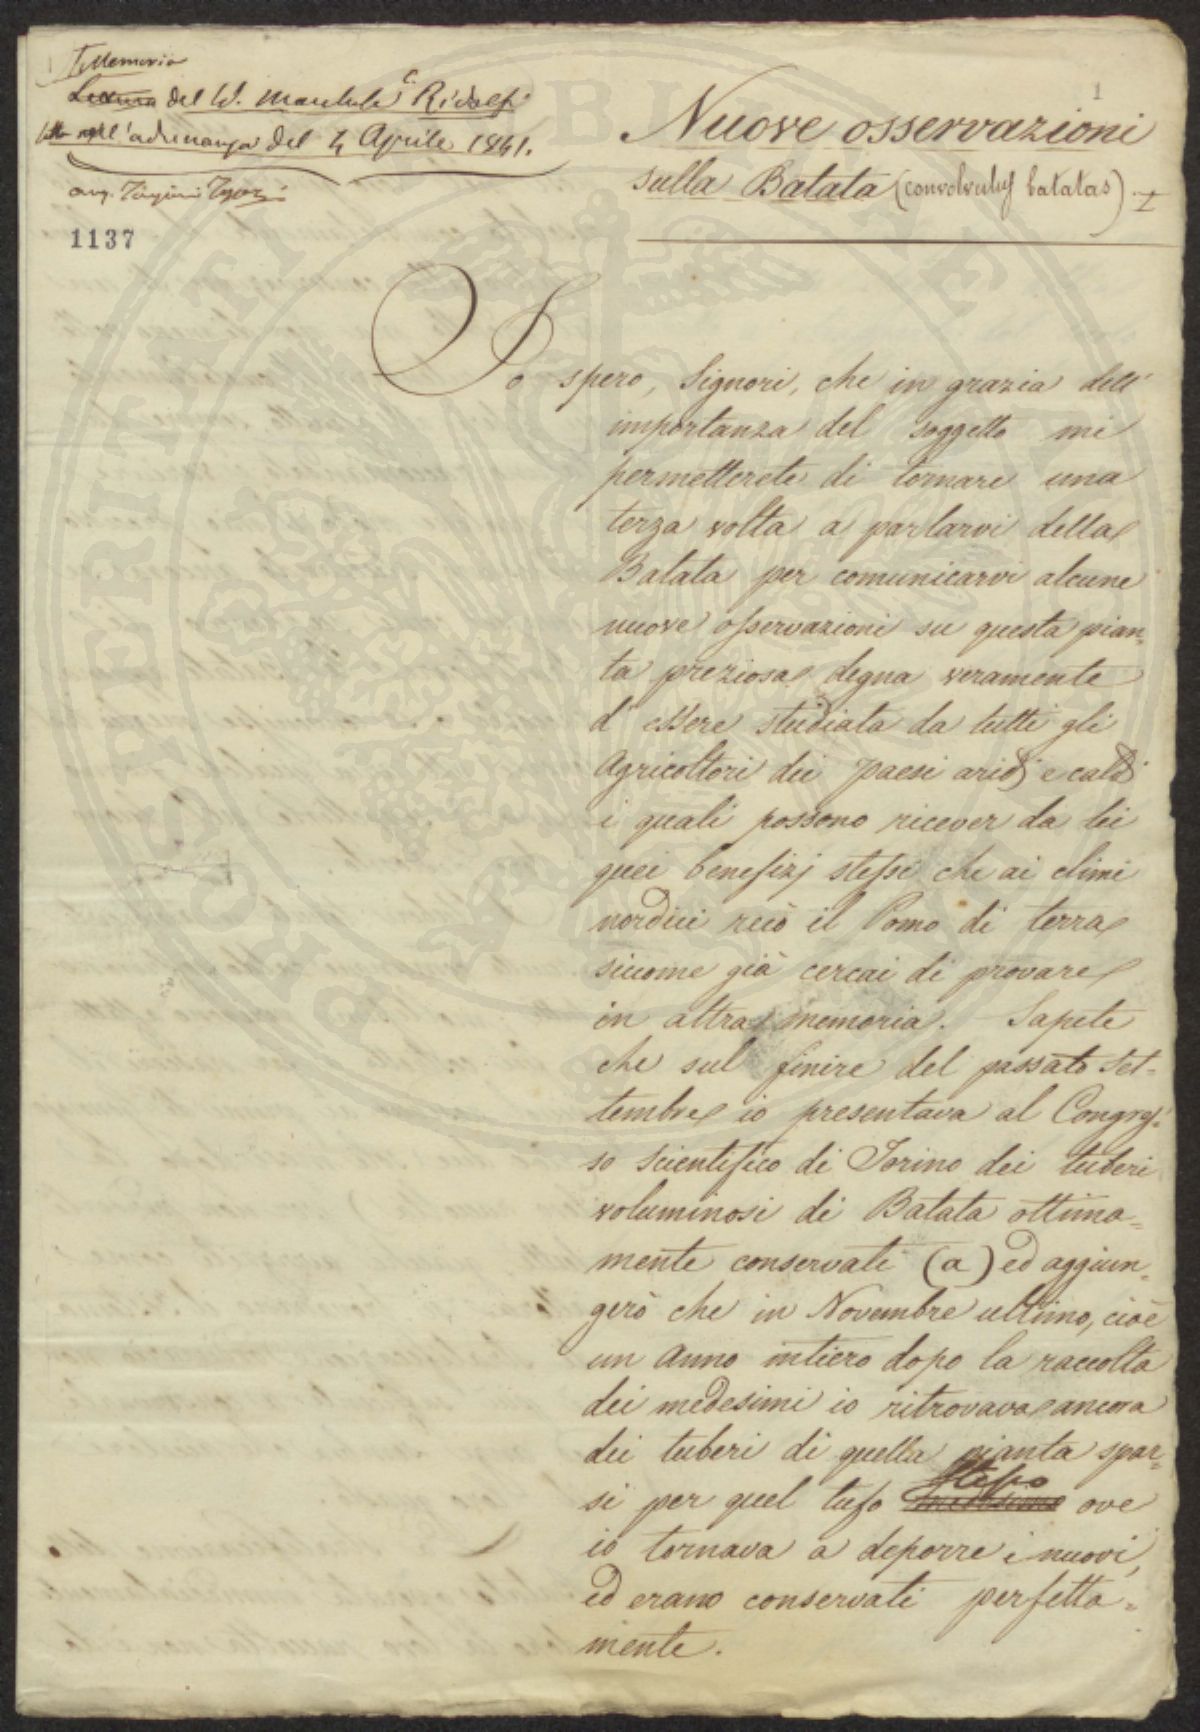 Memoria
Lettura del Sr. Marchese C. Ridolfi
letta nell'adunanza del 4 Aprile 1841.
1137
1
Nuove osservazioni
sulla Batata (convolvulus batatas).
Io spero, Signori, che in grazia dell'
importanza del soggetto mi
permetterete di tornare una
terza volta a parlarvi della
Batata per comunicarvi alcune
nuove osservazioni su questa pian-
ta preziosa degna veramente
d'essere studiata da tutti gli
Agricoltori dei paesi aridi e caldi
i quali possono ricever da lei
quei benefizj stessi che ai climi
nordici recò il Pomo di terra
siccome già cercai di provare
in altra memoria. Sapete
che sul finire del passato Set-
tembre io presentava al Congres-
so Scientifico di Torino dei tuberi
voluminosi di Batata ottima-
mente conservati (a) ed aggiun-
gerò che in Novembre ultimo, cioè
un Anno intiero dopo la raccolta
dei medesimi io ritrovava ancora
dei tuberi di quella pianta spar-
si per quel tufo stesso medesimo ove
io tornava a deporre i nuovi,
ed erano conservati perfetta-
mente.
PROSPERITATI